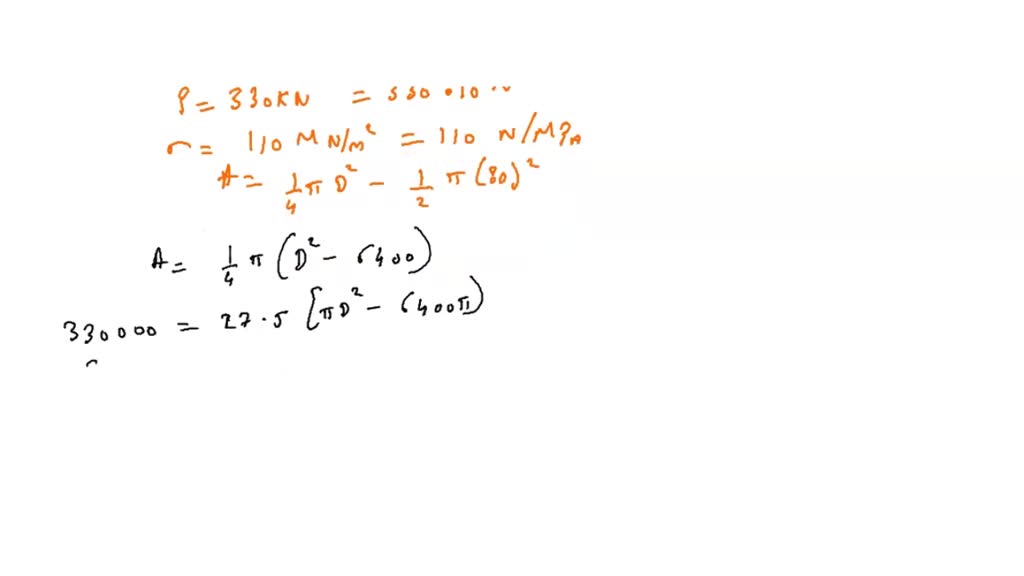 P = 330KN = 330 • 10
σ = 110 MN/m² = 110 N/MPA
A = 1/4 π D² - 1/2 π (80)²
A = 1/4 π (D² - 6400)
330000 = 27.5 [πD² - 6400π)